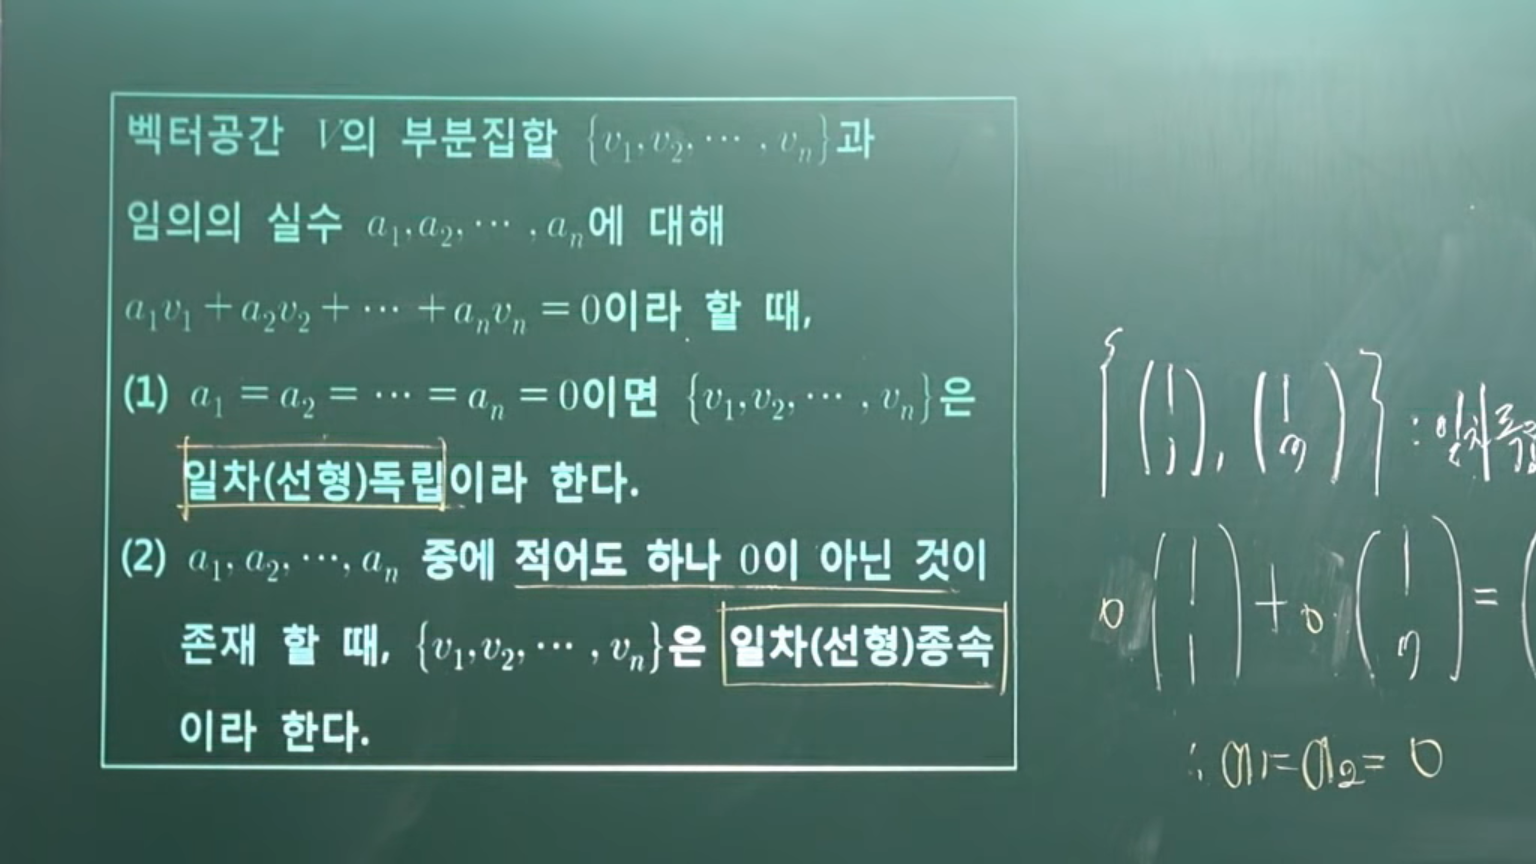 벡터공간 V의 부분집합 {v₁, v₂, ⋯ , vₙ}과
임의의 실수 a₁, a₂, ⋯ , aₙ에 대해
a₁v₁ + a₂v₂ + ⋯ + aₙvₙ = 0이라 할 때,
(1) a₁ = a₂ = ⋯ = aₙ = 0이면 {v₁, v₂, ⋯ , vₙ}은
일차(선형)독립이라 한다.
(2) a₁, a₂, ⋯, aₙ 중에 적어도 하나 0이 아닌 것이
존재 할 때, {v₁, v₂, ⋯ , vₙ}은 일차(선형)종속
이라 한다.
{(1 1), (1 } : 일차
0 (1 1) + 0 (1 ) = (
∴ a₁ = a₂ = 0